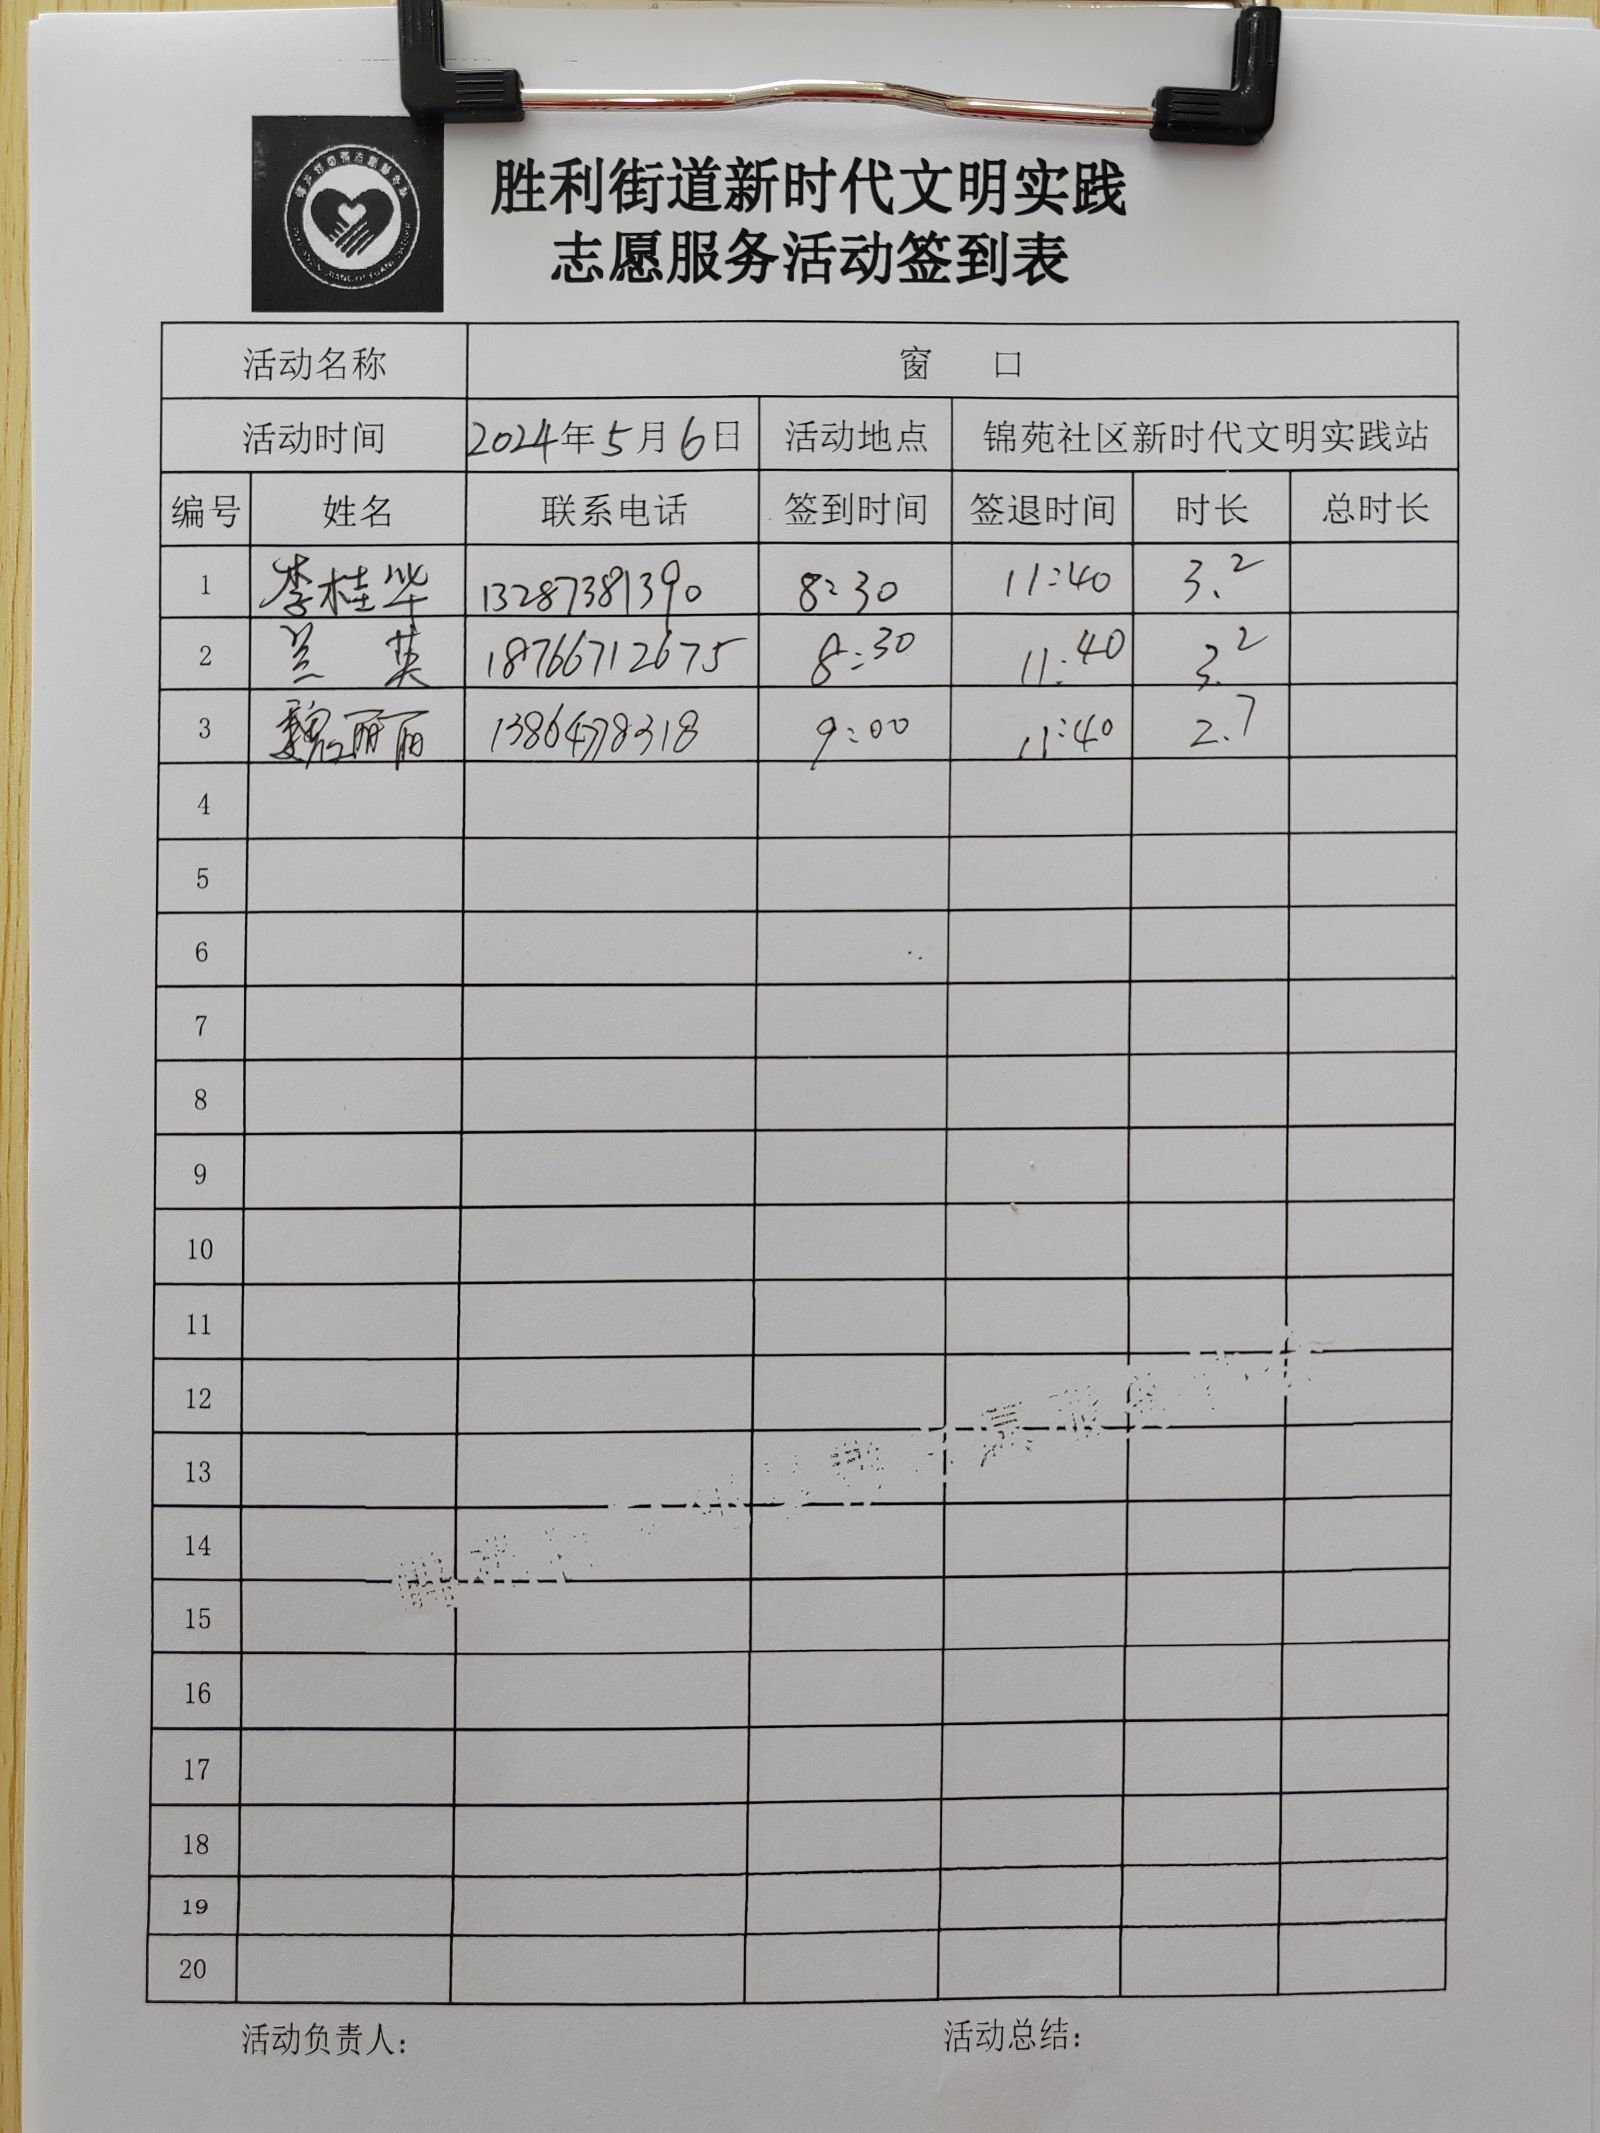 胜利街道新时代文明实践
志愿服务活动签到表
活动名称 窗 口
活动时间 2024年5月6日 活动地点 锦苑社区新时代文明实践站
编号 姓名 联系电话 签到时间 签退时间 时长 总时长
1 李桂华 13287381390 8:30 11:40 3.2
2 兰英 18766712675 8:30 11:40 3.2
3 魏丽丽 1386478318 9:00 11:40 2.7
4
5
6
7
8
9
10
11
12
13
14
15
16
17
18
19
20
活动负责人: 活动总结: